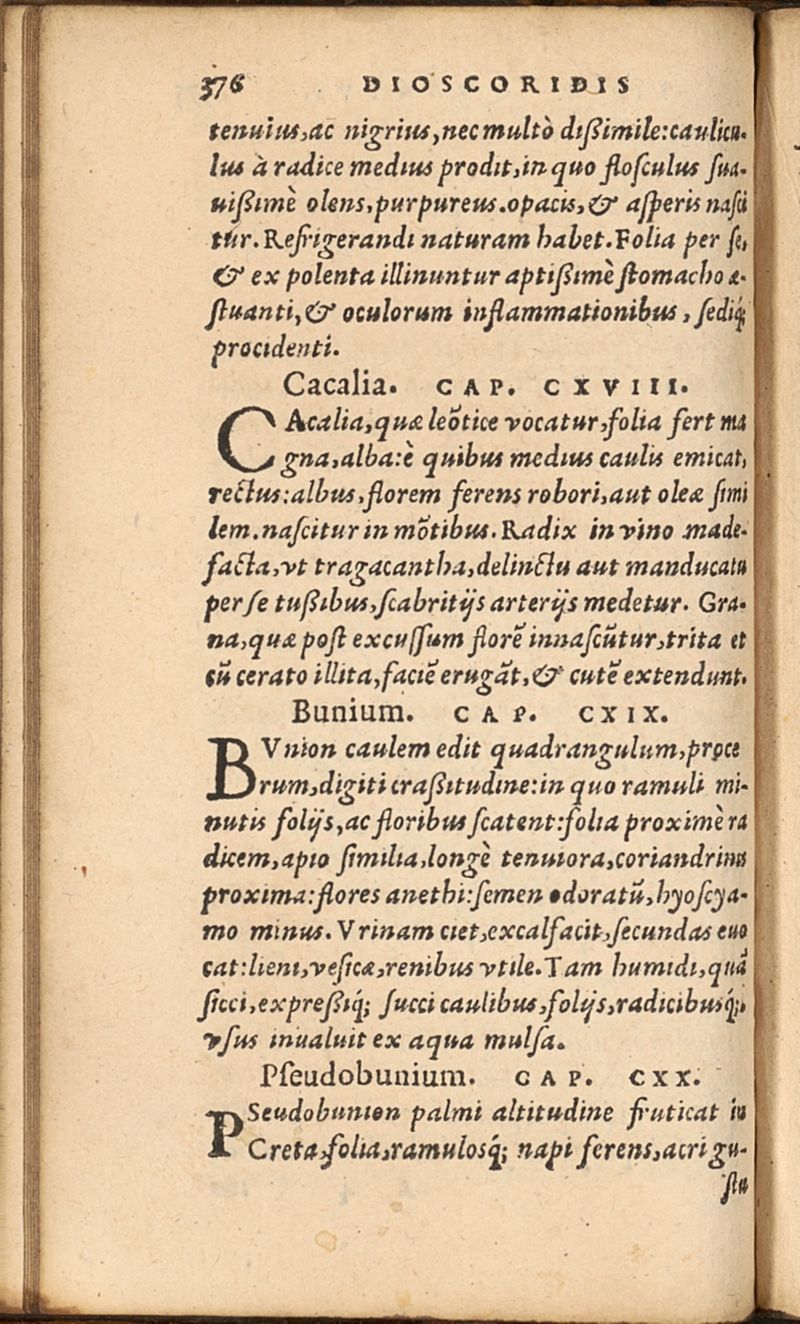 376 DIOSCORIDIS
tenuius,ac nigrius,nec multò dißimile:caulicu-
lus à radice medius prodit,in quo floſculus ſua-
uißimè olens,purpureus.opacis,& aſperis naſci
tur.Refrigerandi naturam habet.Folia per ſe,
& ex polenta illinuntur aptißimè ſtomacho æ-
ſtuanti,& oculorum inflammationibus, ſediq́;
procidenti.
Cacalia. CAP. CXVIII.
CAcalia,quæ leõtice vocatur,folia fert ma
gna,alba:è quibus medius caulis emicat,
rectus:albus,florem ferens robori,aut oleæ ſimi
lem.naſcitur in mõtibus.Radix in vino made-
facta,vt tragacantha,delinctu aut manducata
per ſe tußibus,ſcabritijs arterijs medetur. Gra-
na,quæ poſt excuſſum florẽ innaſcũtur,trita et
cũ cerato illita,faciẽ erugãt,& cutẽ extendunt.
Bunium. CAP. CXIX.
BVnion caulem edit quadrangulum,proce
rum,digiti craßitudine:in quo ramuli mi-
nutis folijs,ac floribus ſcatent:folia proximè ra
dicem,apio ſimilia,longè tenuiora,coriandrinis
proxima:flores anethi:ſemen odoratũ,hyoſcya-
mo minus. Vrinam ciet,excalfacit,ſecundas euo
cat:lieni,veſicæ,renibus vtile.Tam humidi,quã
ſicci,expreßiq́; ſucci caulibus,folijs,radicibusq́;,
vſus inualuit ex aqua mulſa.
Pſeudobunium. CAP. CXX.
PSeudobunion palmi altitudine fruticat in
Creta,folia,ramulosq́; napi ferens,acri gu-
ſtu